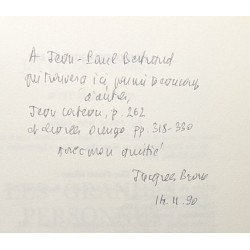 A Jean-Paul Bertrand
qui trouvera ici, parmi beaucoup
d'autres,
Jean Cocteau, p. 262
et Georges pp. 318-330
avec mon amitié
Jacques
14.11.90